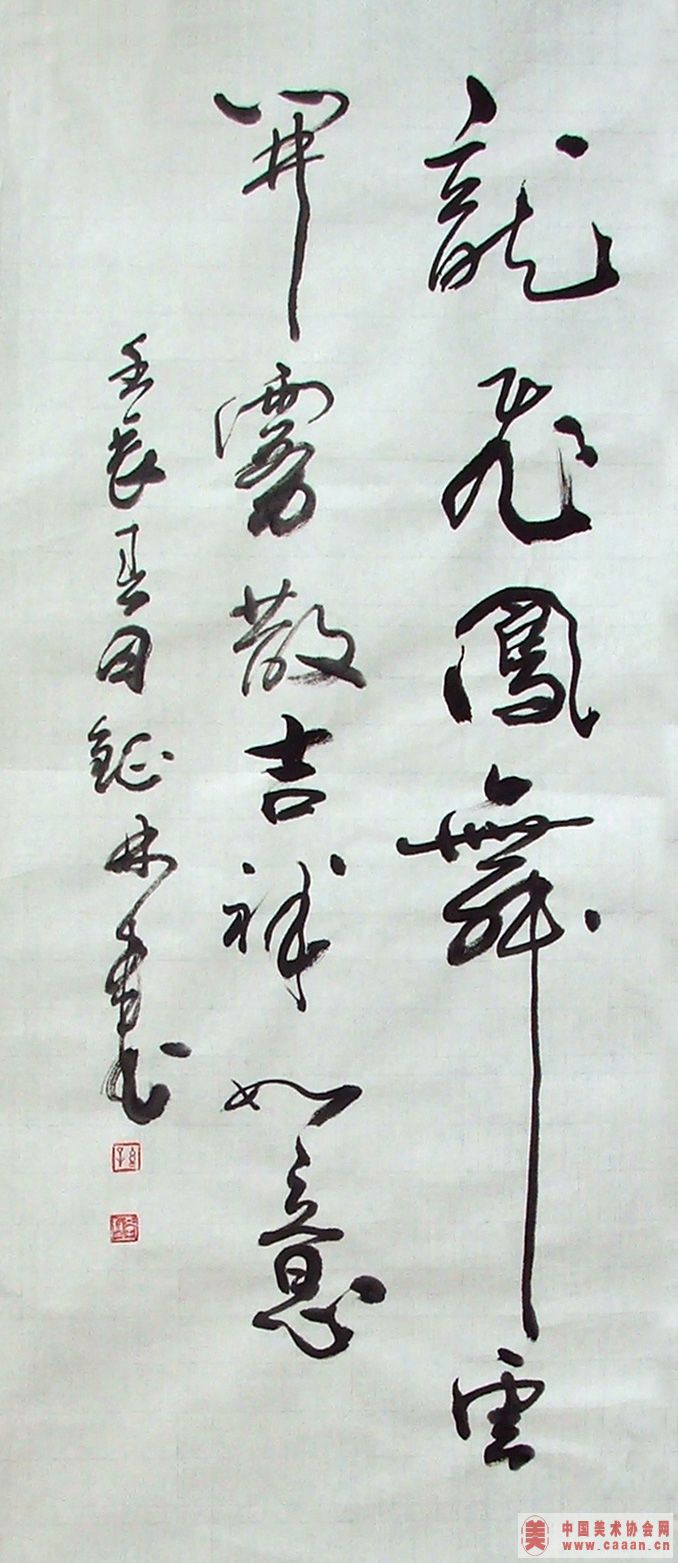 龍飛鳳舞雲
開霧散吉祥如意
壬辰春月
美
中国美术协会网
www.caaan.cn